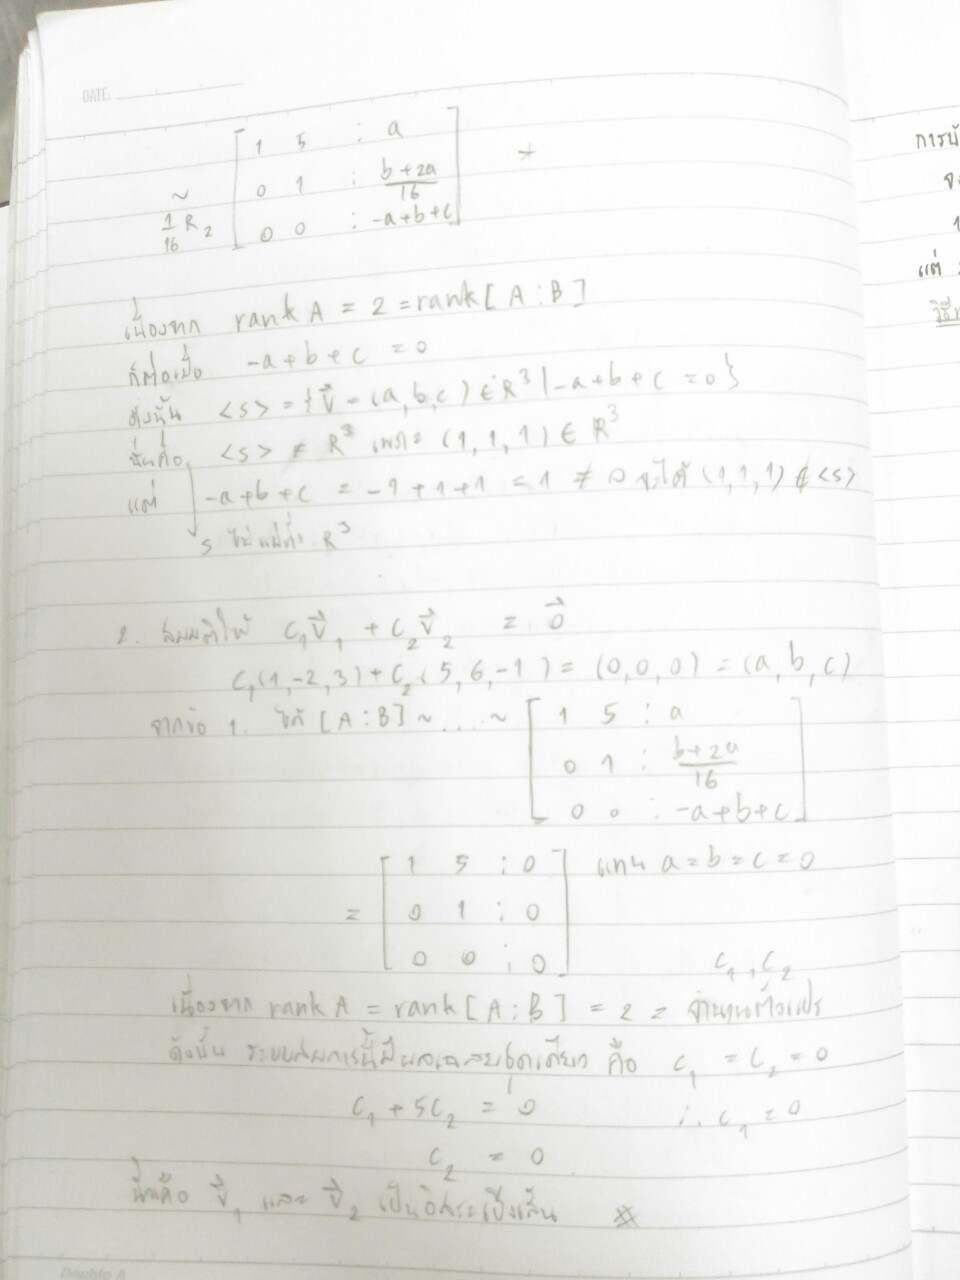 DATE:
1 5 : a
~ 0 1 : b+2a/16
1/16 R2 0 0 : -a+b+c
เนื่องจาก rank A = 2 = rank [A:B]
ก็ต่อเมื่อ -a+b+c = 0
ดังนั้น <s> = { v⃗ = (a,b,c) ∈ R³ | -a+b+c = 0 }
นั่นคือ <s> ≠ R³ เพราะ (1,1,1) ∈ R³
แต่ -a+b+c = -1+1+1 = 1 ≠ 0 จะได้ (1,1,1) ∉ <s>
s ไม่แผ่ทั่ว R³
2. สมมติให้ c₁v⃗₁ + c₂v⃗₂ = 0⃗
c₁(1,-2,3) + c₂(5,6,-1) = (0,0,0) = (a,b,c)
จากข้อ 1. ได้ [A:B] ~ ... ~ 1 5 : a
0 1 : b+2a/16
0 0 : -a+b+c
1 5 : 0 แทน a=b=c=0
= 0 1 : 0
0 0 : 0
c₁, c₂
เนื่องจาก rank A = rank [A:B] = 2 = จำนวนตัวแปร
ดังนั้น ระบบสมการนี้มีผลเฉลยชุดเดียว คือ c₁ = c₂ = 0
c₁ + 5c₂ = 0 ∴ c₁ = 0
c₂ = 0
นั่นคือ v⃗₁ และ v⃗₂ เป็นอิสระเชิงเส้น #
Double A
แต่